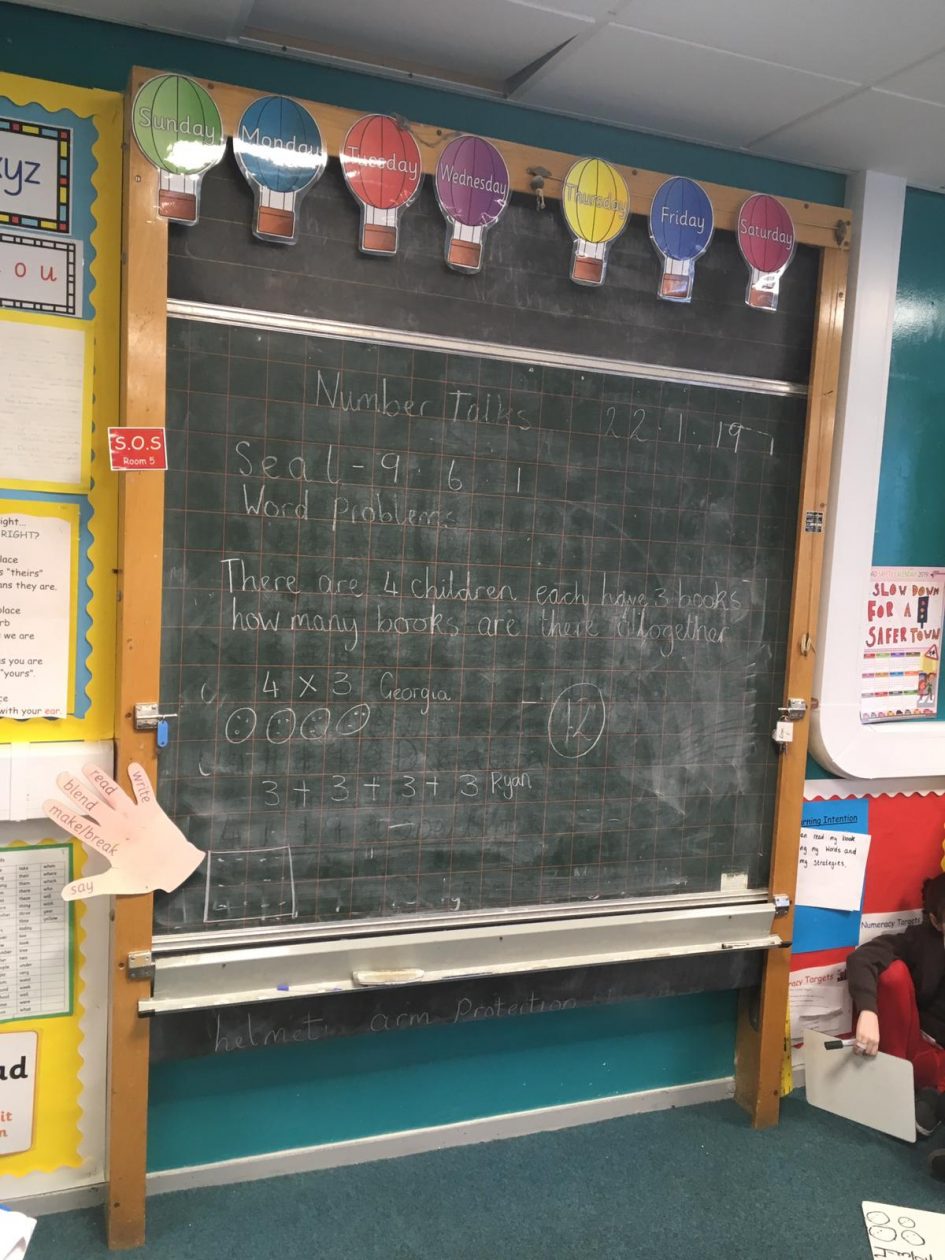 Sunday
Monday
Tuesday
Wednesday
Thursday
Friday
Saturday
xyz
o u
S.O.S
Room 5
Number Talks 22.1.19
Seal - 9 6 1
Word Problems
There are 4 children each have 3 books
how many books are there altogether
4 x 3 Georgia
12
3 + 3 + 3 + 3 Ryan
helmet arm Protection
write
read
blend
make/break
say
ight...
RIGHT?
lace
s "theirs"
ans they are.
place
rb
we are
s you are
"yours".
ce
with your ear.
ad
it
n
SLOW DOWN
FOR A
SAFER TOWN
rning Intention
an read my book
ng my words and
my strategies.
Numeracy Targets
racy Targets